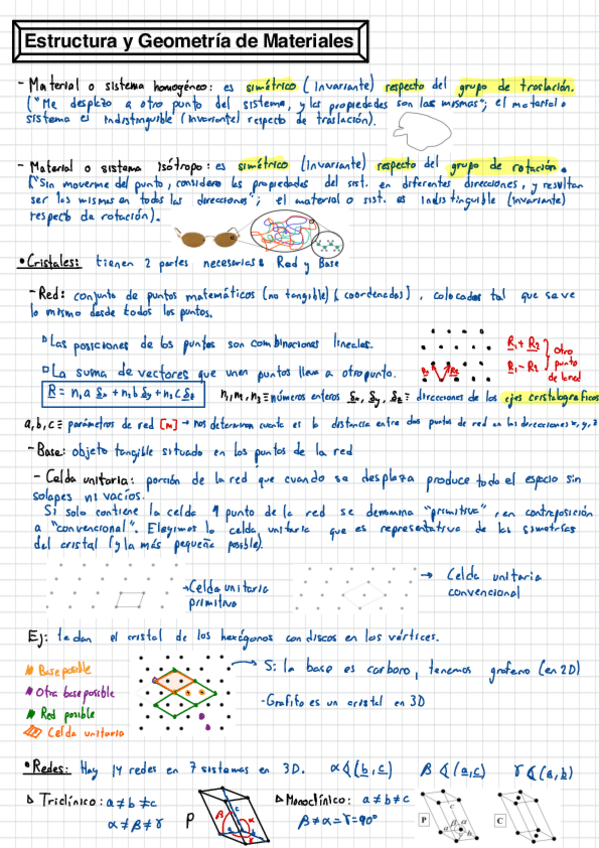 Estructura y Geometría de Materiales
- Material o sistema homogéneo: es simétrico (invariante) respecto del grupo de traslación.
("Me desplazo a otro punto del sistema, y las propiedades son las mismas"; el material o
sistema es indistinguible (invariante) respecto de traslación).
- Material o sistema isótropo: es simétrico (invariante) respecto del grupo de rotación.
("Sin moverme del punto, considero las propiedades del sist. en diferentes direcciones, y resultan
ser las mismas en todas las direcciones"; el material o sist. es indistinguible (invariante)
respecto de rotación).
• Cristales: tienen 2 partes necesarias: Red y Base
- Red: conjunto de puntos matemáticos (no tangible) (coordenadas), colocados tal que se ve
lo mismo desde todos los puntos.
Las posiciones de los puntos son combinaciones lineales.
La suma de vectores que unen puntos lleva a otro punto.
R1 + R2
R1 - R2
otro
punto
de la red
R2 R1
R = n1 a + n2 b + n3 c
≡ números enteros
≡ direcciones de los ejes cristalográficos
a, b, c ≡ parámetros de red [m] → nos determinan cuanta es la distancia entre dos puntos de red en las direcciones x, y, z
- Base: objeto tangible situado en los puntos de la red
- Celda unitaria: porción de la red que cuando se desplaza produce todo el espacio sin
solapes ni vacíos.
Si solo contiene la celda 1 punto de la red se denomina "primitiva", en contraposición
a "convencional". Elegimos la celda unitaria que es representativa de las simetrías
del cristal (y la más pequeña posible).
→ Celda unitaria
primitiva
→ Celda unitaria
convencional
Ej: te dan el cristal de los hexágonos con discos en los vértices.
Base posible
Otra base posible
Red posible
Celda unitaria
Si la base es carbono, tenemos grafeno (en 2D)
- Grafito es un cristal en 3D
• Redes: Hay 14 redes en 7 sistemas en 3D. α∢(b,c) β∢(a,c) γ∢(a,b)
Triclínico: a≠b≠c
α≠β≠γ
P
β
α
c
Monoclínico: a≠b≠c
β≠α=γ=90°
P
c
β
a
b
C